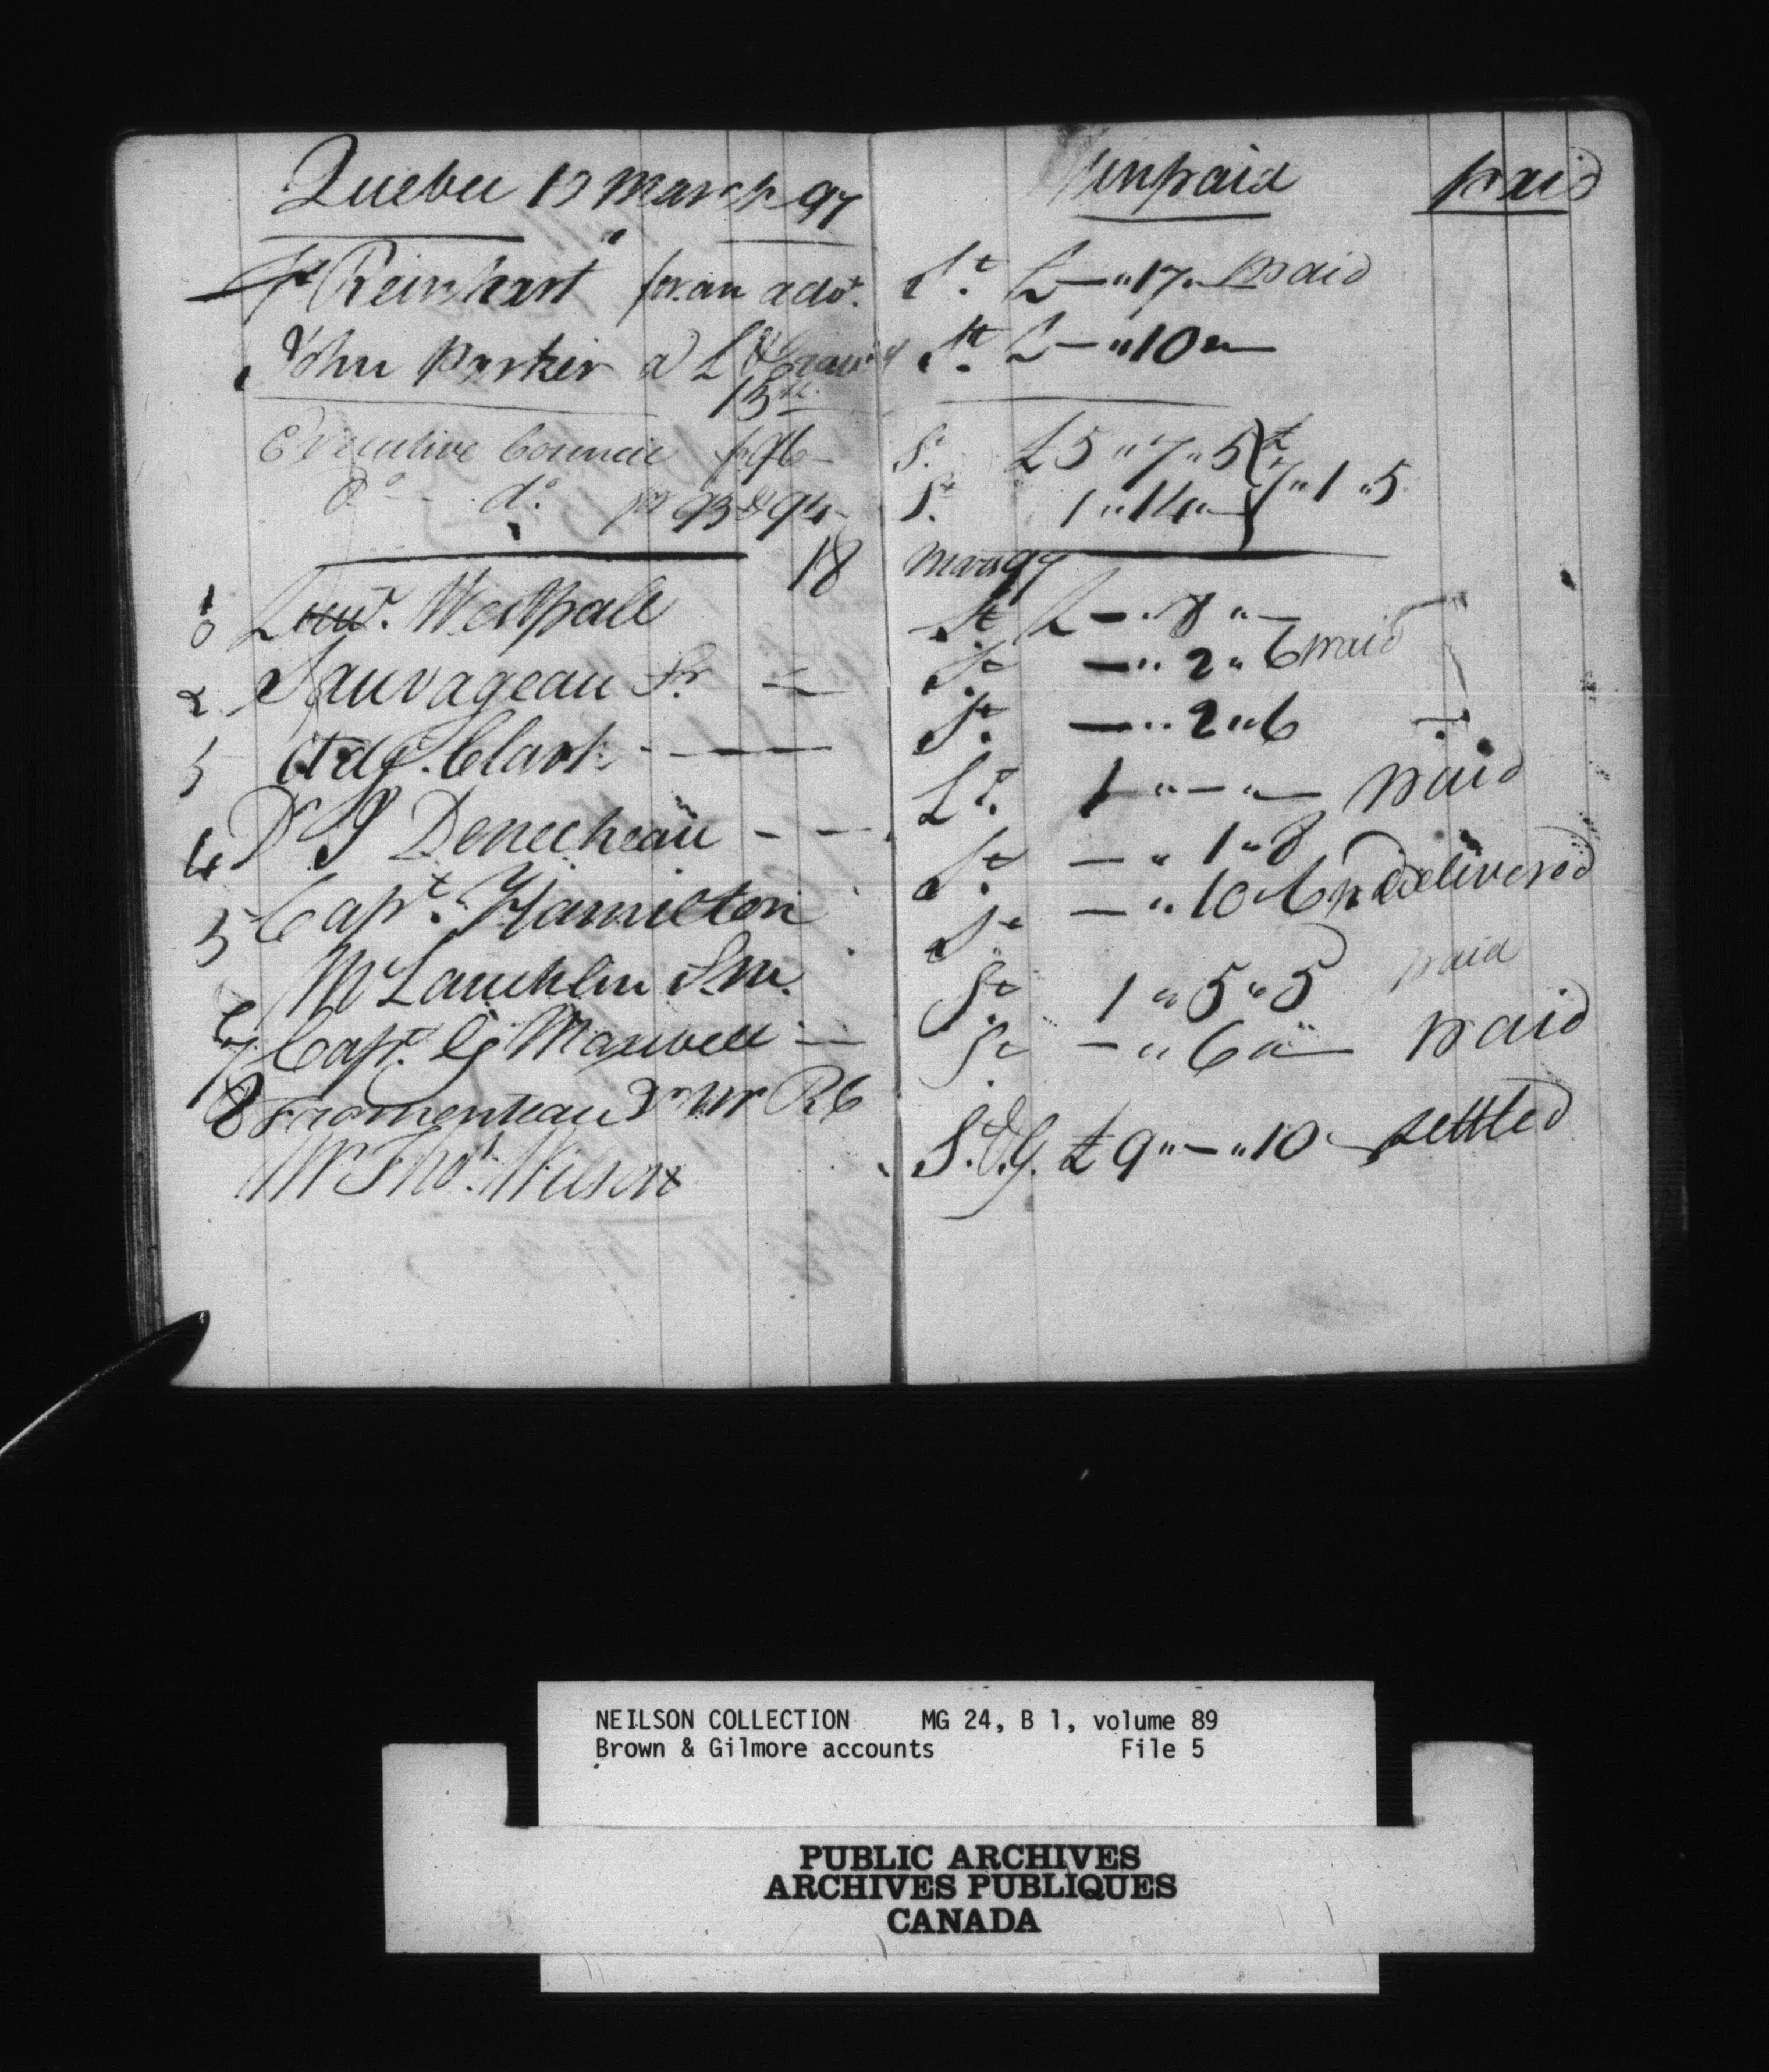 Quebec 13 March 97 unpaid paid
Reinhart for an advt. St £ — " 17 " paid
John Parker a St £ — " 10 " —
13th
Executive Council for 96 — St £ 5 " 7 " 5
Do — do. for 93 & 94 — St 1 " 14 " — 7 " 1 " 5
18 March 97
Westpall St £ — " 8 " —
2 Sauvageau Sr — St — " 2 " 6 paid
3 Adj. Clark — St — " 2 " 6
4 Dr P Denecheau — — St 1 " — " — paid
5 Capt. Hamilton St — " 1 " 8
McLauchlin St — " 10 " 6 delivered
7 Capt. G Maxwell — St 1 " 5 " 5 paid
8 Fromenteau St — " 6 " — paid
Mr Thos. Wilson S. & G. £ 9 " — " 10 settled
NEILSON COLLECTION MG 24, B 1, volume 89
Brown & Gilmore accounts File 5
PUBLIC ARCHIVES
ARCHIVES PUBLIQUES
CANADA